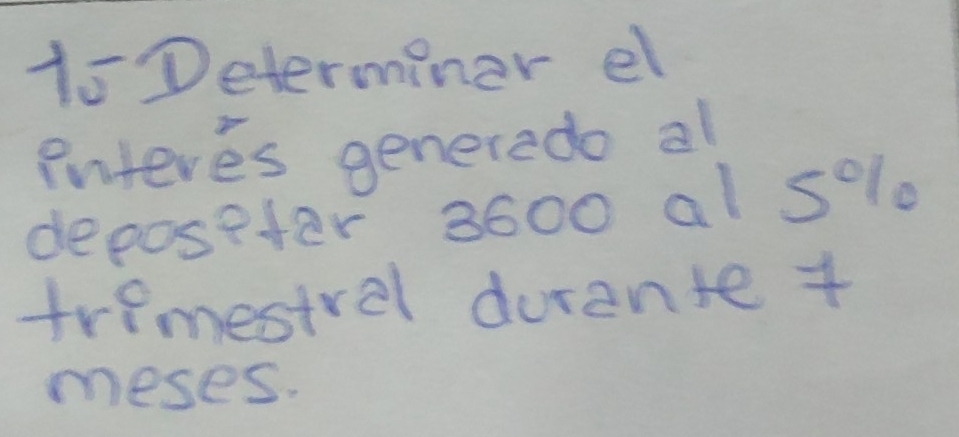 1.- Determinar el
interés generado al
depositar 3600 al 5%
trimestral durante 7
meses.